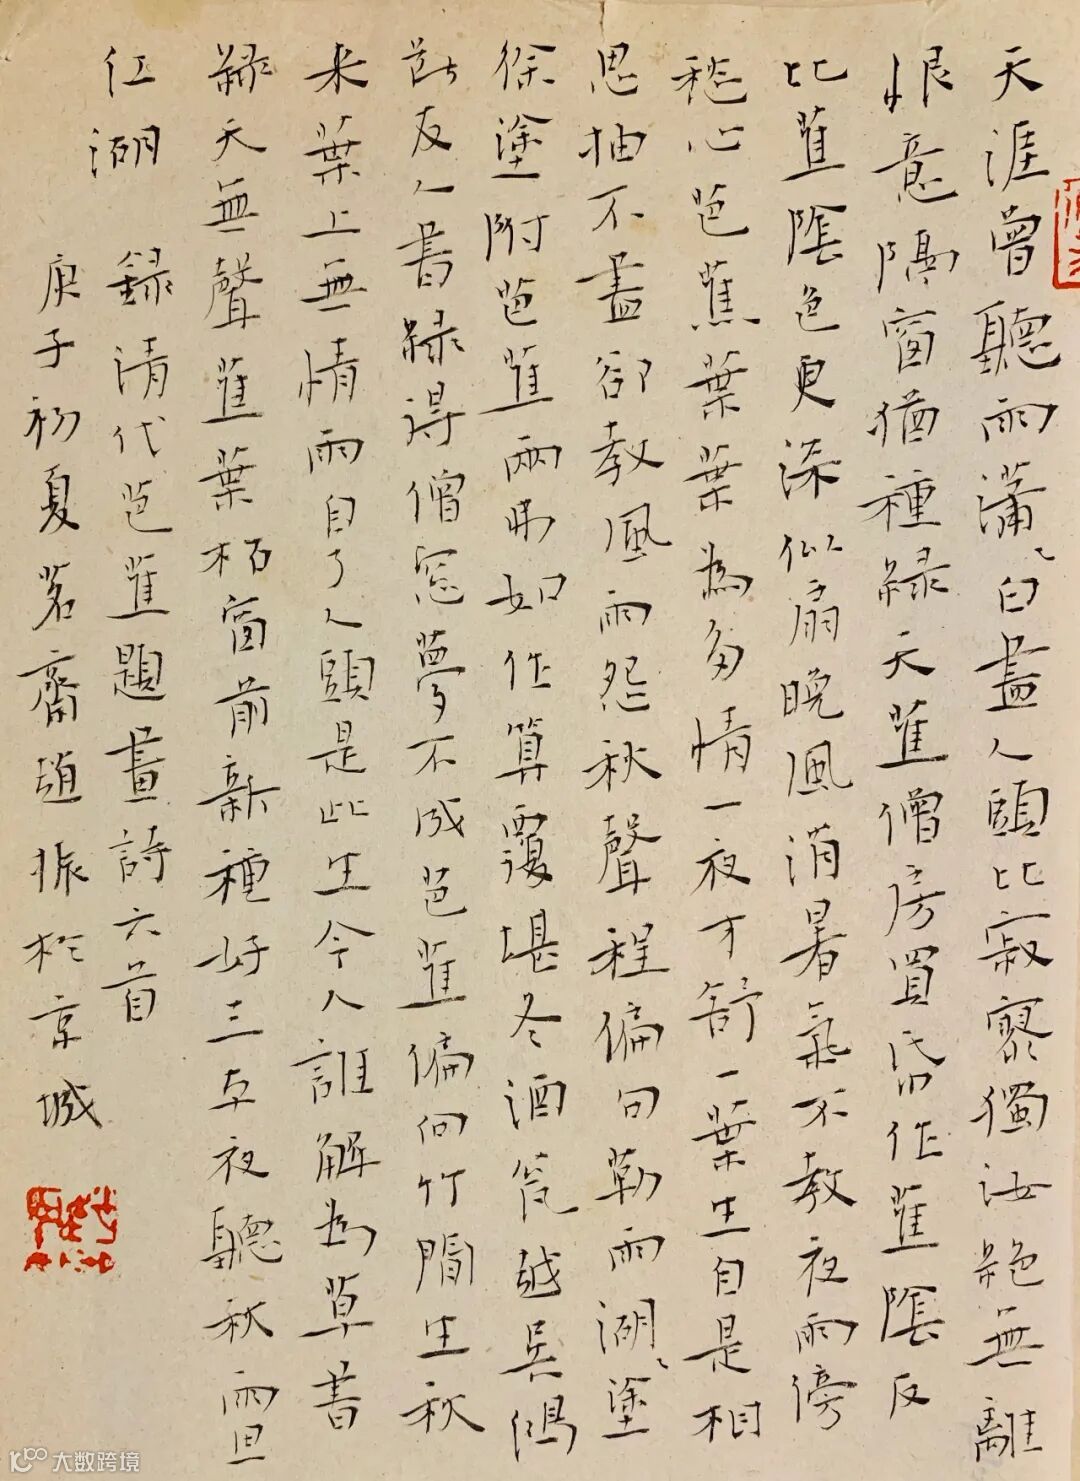 天涯曾聽雨瀟〻白盡人頭比寂寥獨汝絕無離
恨意隔窗猶種綠天蕉僧房買昏作蕉陰反
比蕉陰色更深似扇晚風消暑氣不教夜雨傍
愁心芭蕉葉葉為多情一夜才舒一葉生自是相
思抽不盡卻教風雨怨秋聲程偏句勒雨湖〻塗
徐塗附芭蕉兩 如作算覆堪冬酒甕越兵鴻
友人書綠得僧窓夢不成芭蕉偏向竹間生秋
來葉上無情雨自了人頭是此生今人誰解為草書
綠天無聲蕉葉枯窗前新種好三五夜聽秋雨宜
江湖 錄清代芭蕉題畫詩六首
庚子初夏茗齋趙振於京城
大数跨境